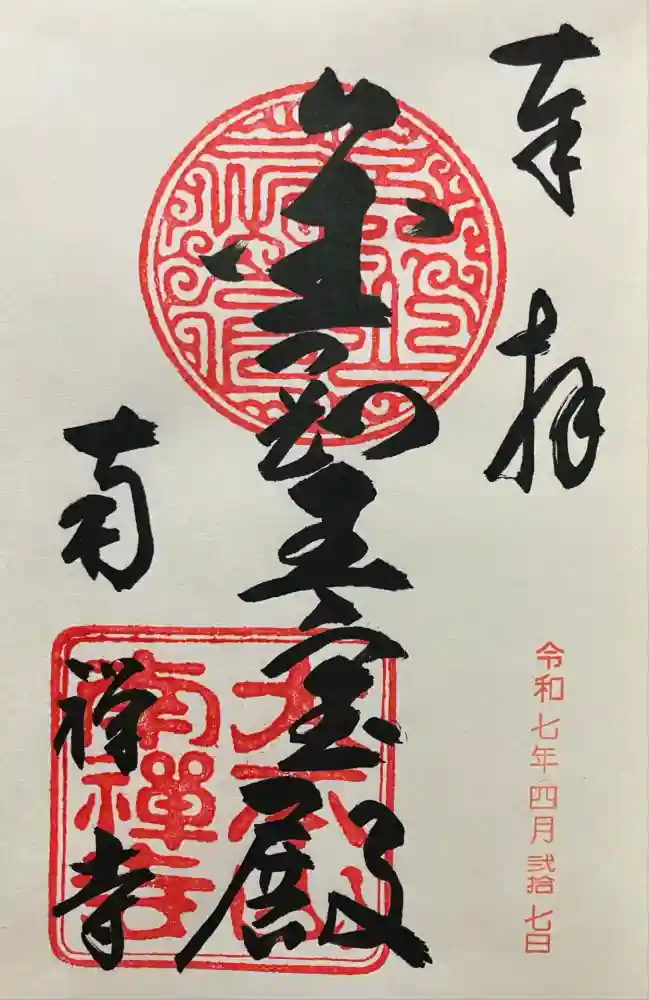 奉拝
令和七年四月弐拾七日
金剛王宝殿
南禅寺
大本山
南禪寺